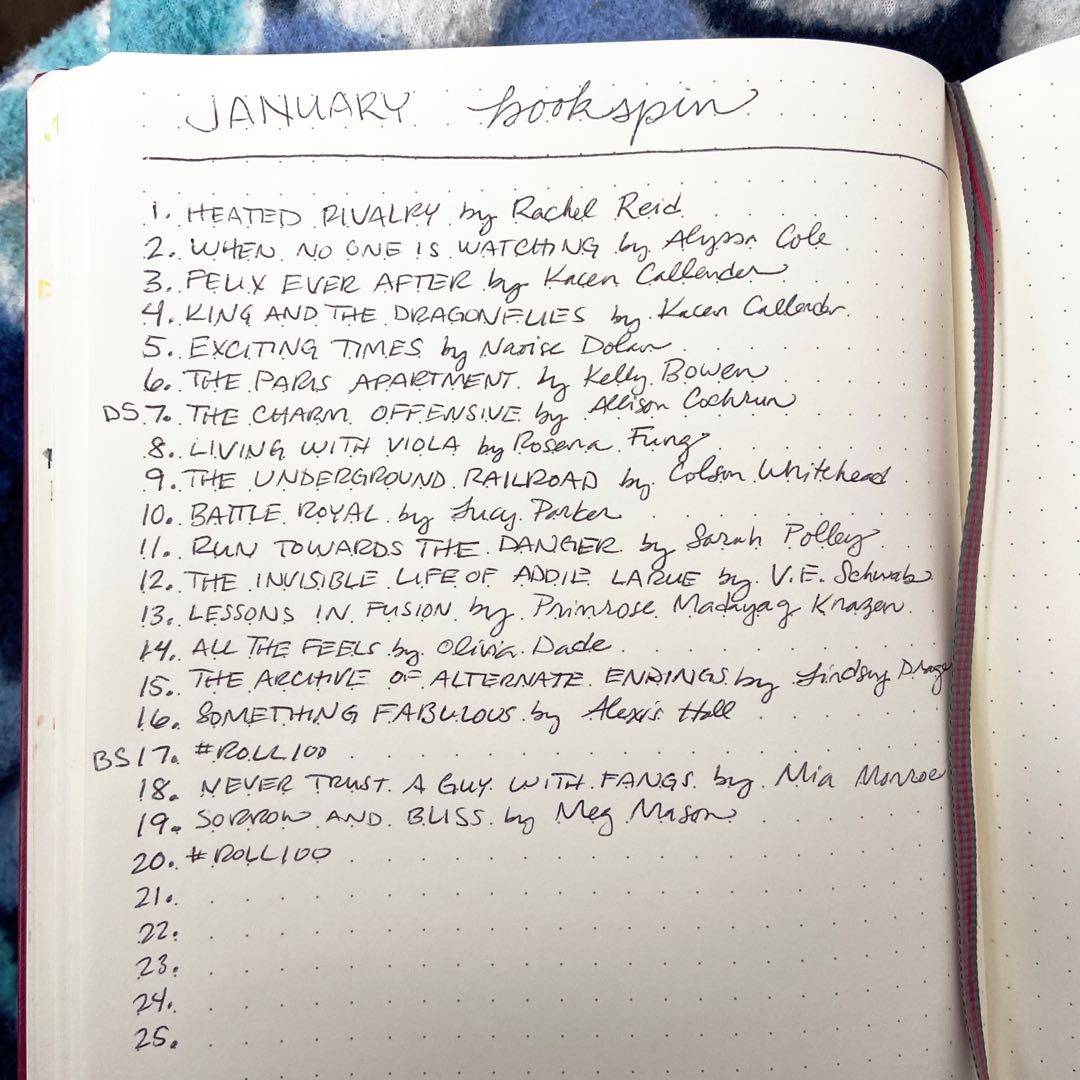 JANUARY bookspin
1. HEATED RIVALRY by Rachel Reid
2. WHEN NO ONE IS WATCHING by Alyssa Cole
3. FELIX EVER AFTER by Kacen Callender
4. KING AND THE DRAGONFLIES by Kacen Callender
5. EXCITING TIMES by Naoise Dolan
6. THE PARIS APARTMENT by Kelly Bowen
DS 7. THE CHARM OFFENSIVE by Allison Cochrun
8. LIVING WITH VIOLA by Rosena Fung
9. THE UNDERGROUND RAILROAD by Colson Whitehead
10. BATTLE ROYAL by Lucy Parker
11. RUN TOWARDS THE DANGER by Sarah Polley
12. THE INVISIBLE LIFE OF ADDIE LARUE by V.E. Schwab
13. LESSONS IN FUSION by Primrose Madayag Knazan
14. ALL THE FEELS by Olivia Dade
15. THE ARCHIVE OF ALTERNATE ENDINGS by Lindsey Drage
16. SOMETHING FABULOUS by Alexis Hall
BS 17. #ROLL100
18. NEVER TRUST A GUY WITH FANGS by Mia Monroe
19. SORROW AND BLISS by Meg Mason
20. #ROLL100
21.
22.
23.
24.
25.